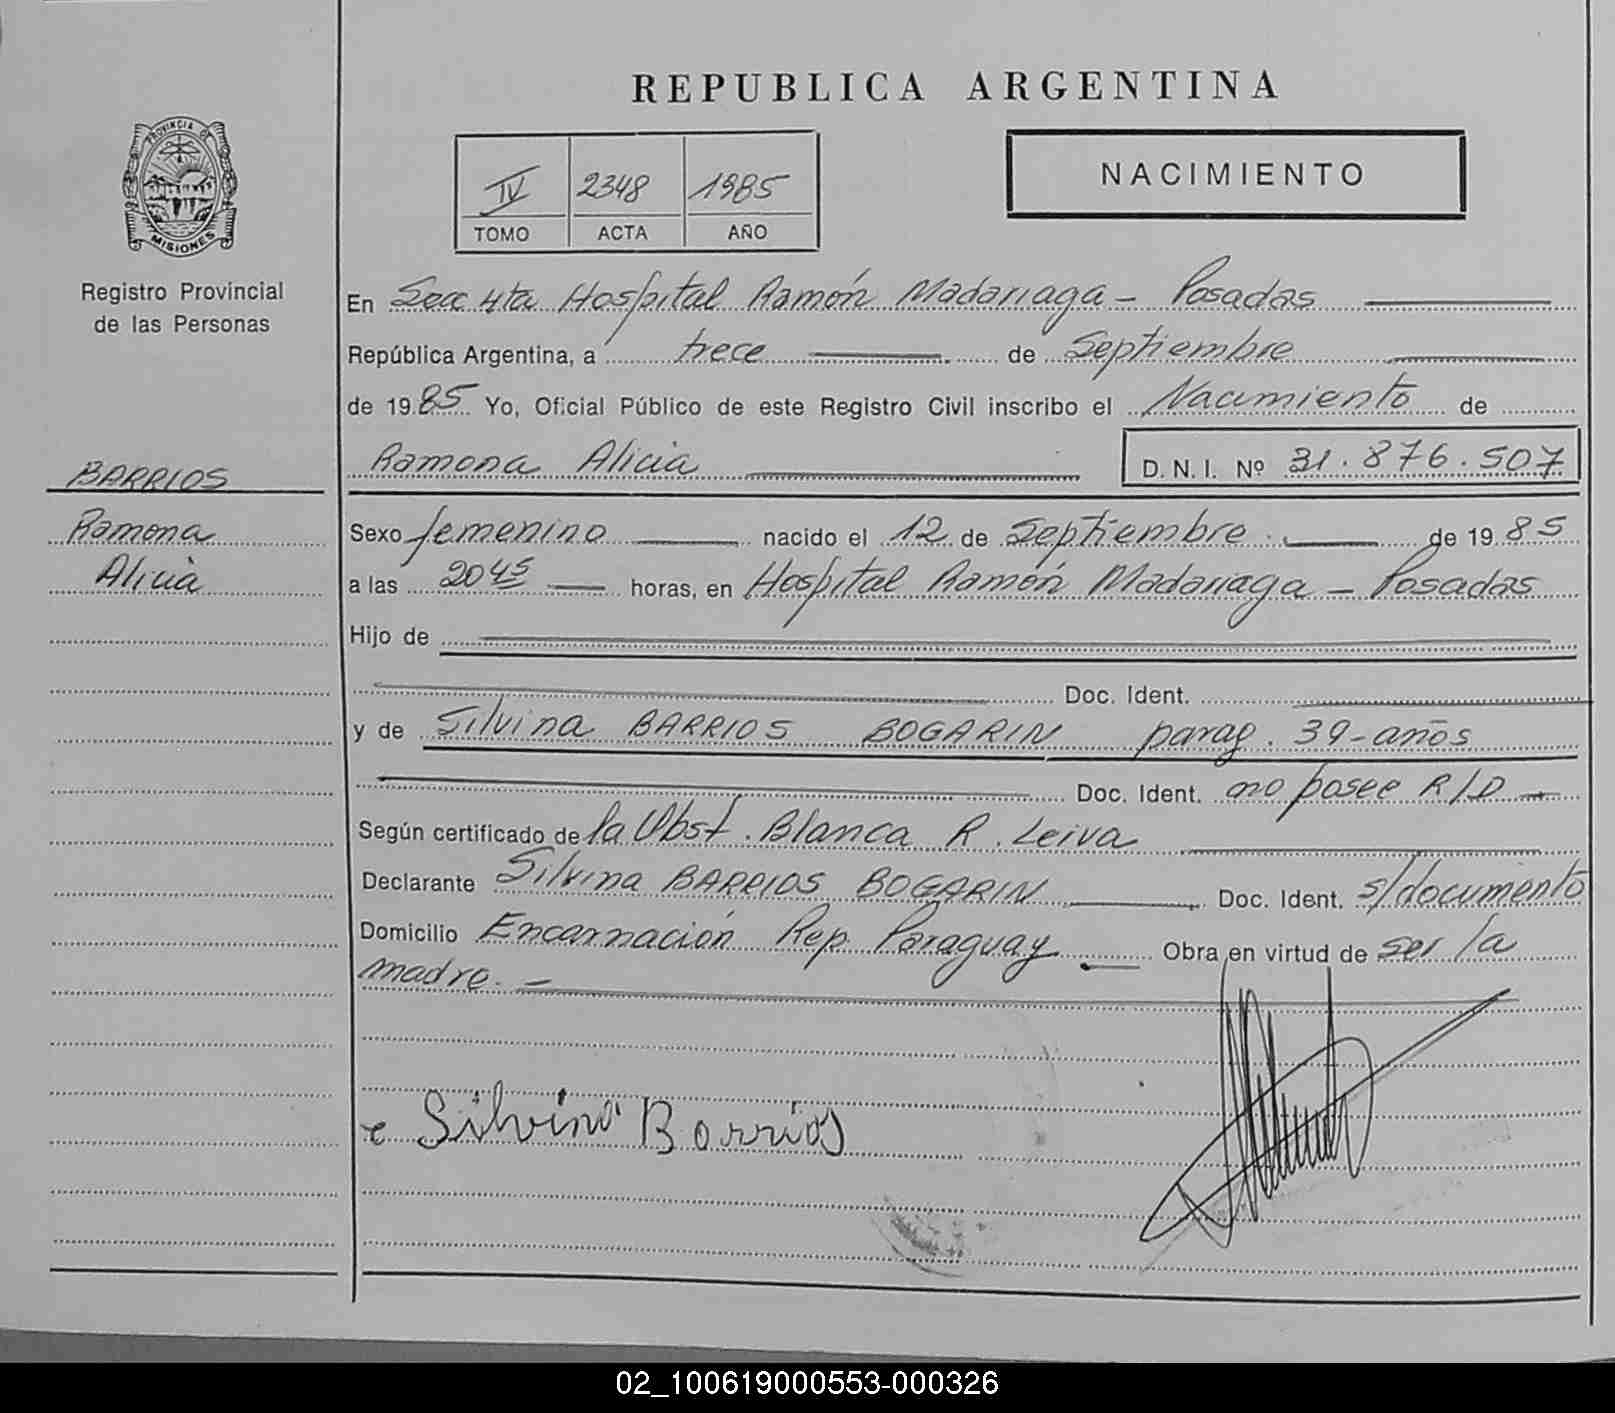 REPUBLICA ARGENTINA
PROVINCIA DE
MISIONES
IV 2348 1985
TOMO ACTA AÑO
NACIMIENTO
Registro Provincial
de las Personas
En Secc 4ta Hospital Ramón Madariaga - Posadas
República Argentina, a trece de Septiembre
de 1985 Yo, Oficial Público de este Registro Civil inscribo el Nacimiento de
Ramona Alicia D. N. I. Nº 31.876.507
BARRIOS
Ramona
Alicia
Sexo femenino nacido el 12 de Septiembre de 1985
a las 2045 horas, en Hospital Ramón Madariaga - Posadas
Hijo de
Doc. Ident.
y de Silvina BARRIOS BOGARIN parag. 39-años
Doc. Ident. no posee R/D
Según certificado de la Obst. Blanca R. Leiva
Declarante Silvina BARRIOS BOGARIN Doc. Ident. s/documento
Domicilio Encarnación Rep. Paraguay Obra en virtud de ser la
madre. -
Silvina Barrios
02_100619000553-000326